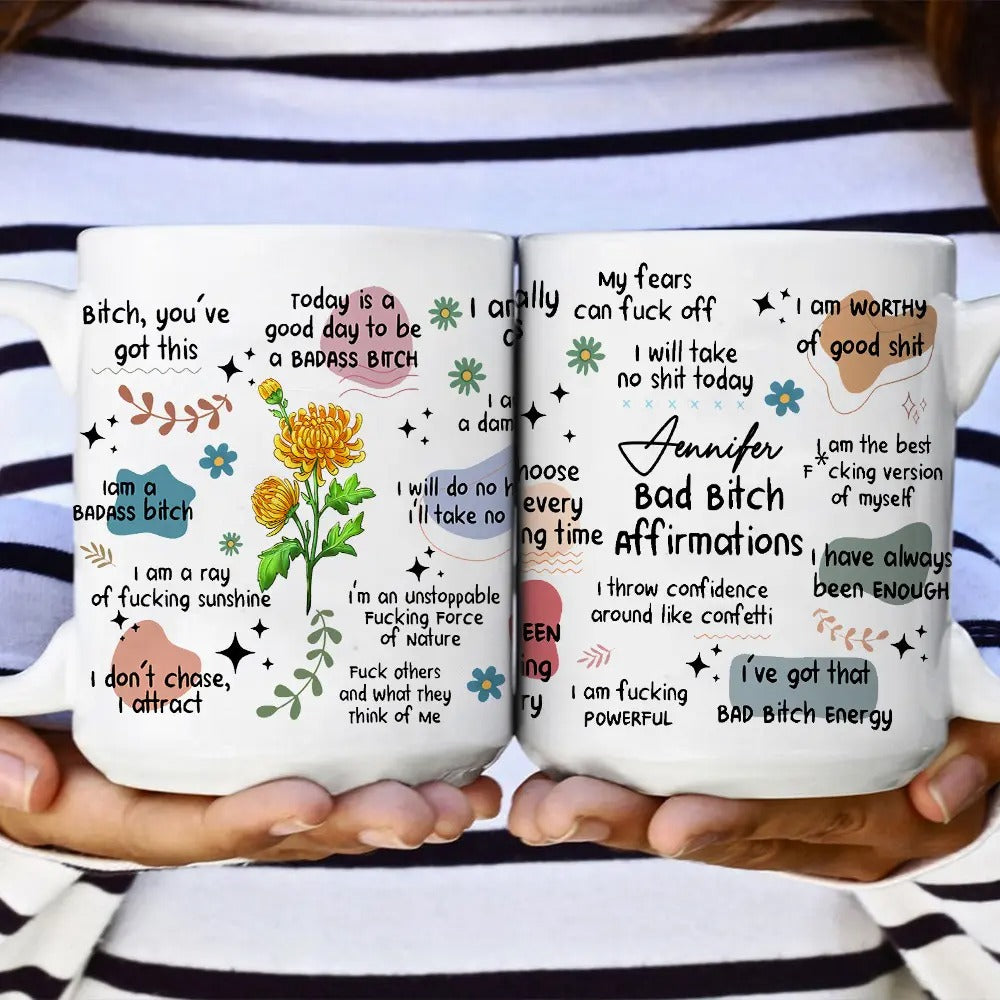 Bitch, you've
got this
Today is a
good day to be
a BADASS BITCH
I am a
BADASS bitch
I will do no
I'll take no
I am a ray
of fucking sunshine
I'm an unstoppable
Fucking Force
of Nature
I don't chase,
I attract
Fuck others
and what they
Think of Me
My fears
can fuck off
I am WORTHY
of good shit
I will take
no shit today
Jennifer
Bad Bitch
Affirmations
I am the best
F*cking version
of myself
every
time
I have always
been ENOUGH
I throw confidence
around like confetti
I am fucking
POWERFUL
I've got that
BAD Bitch Energy